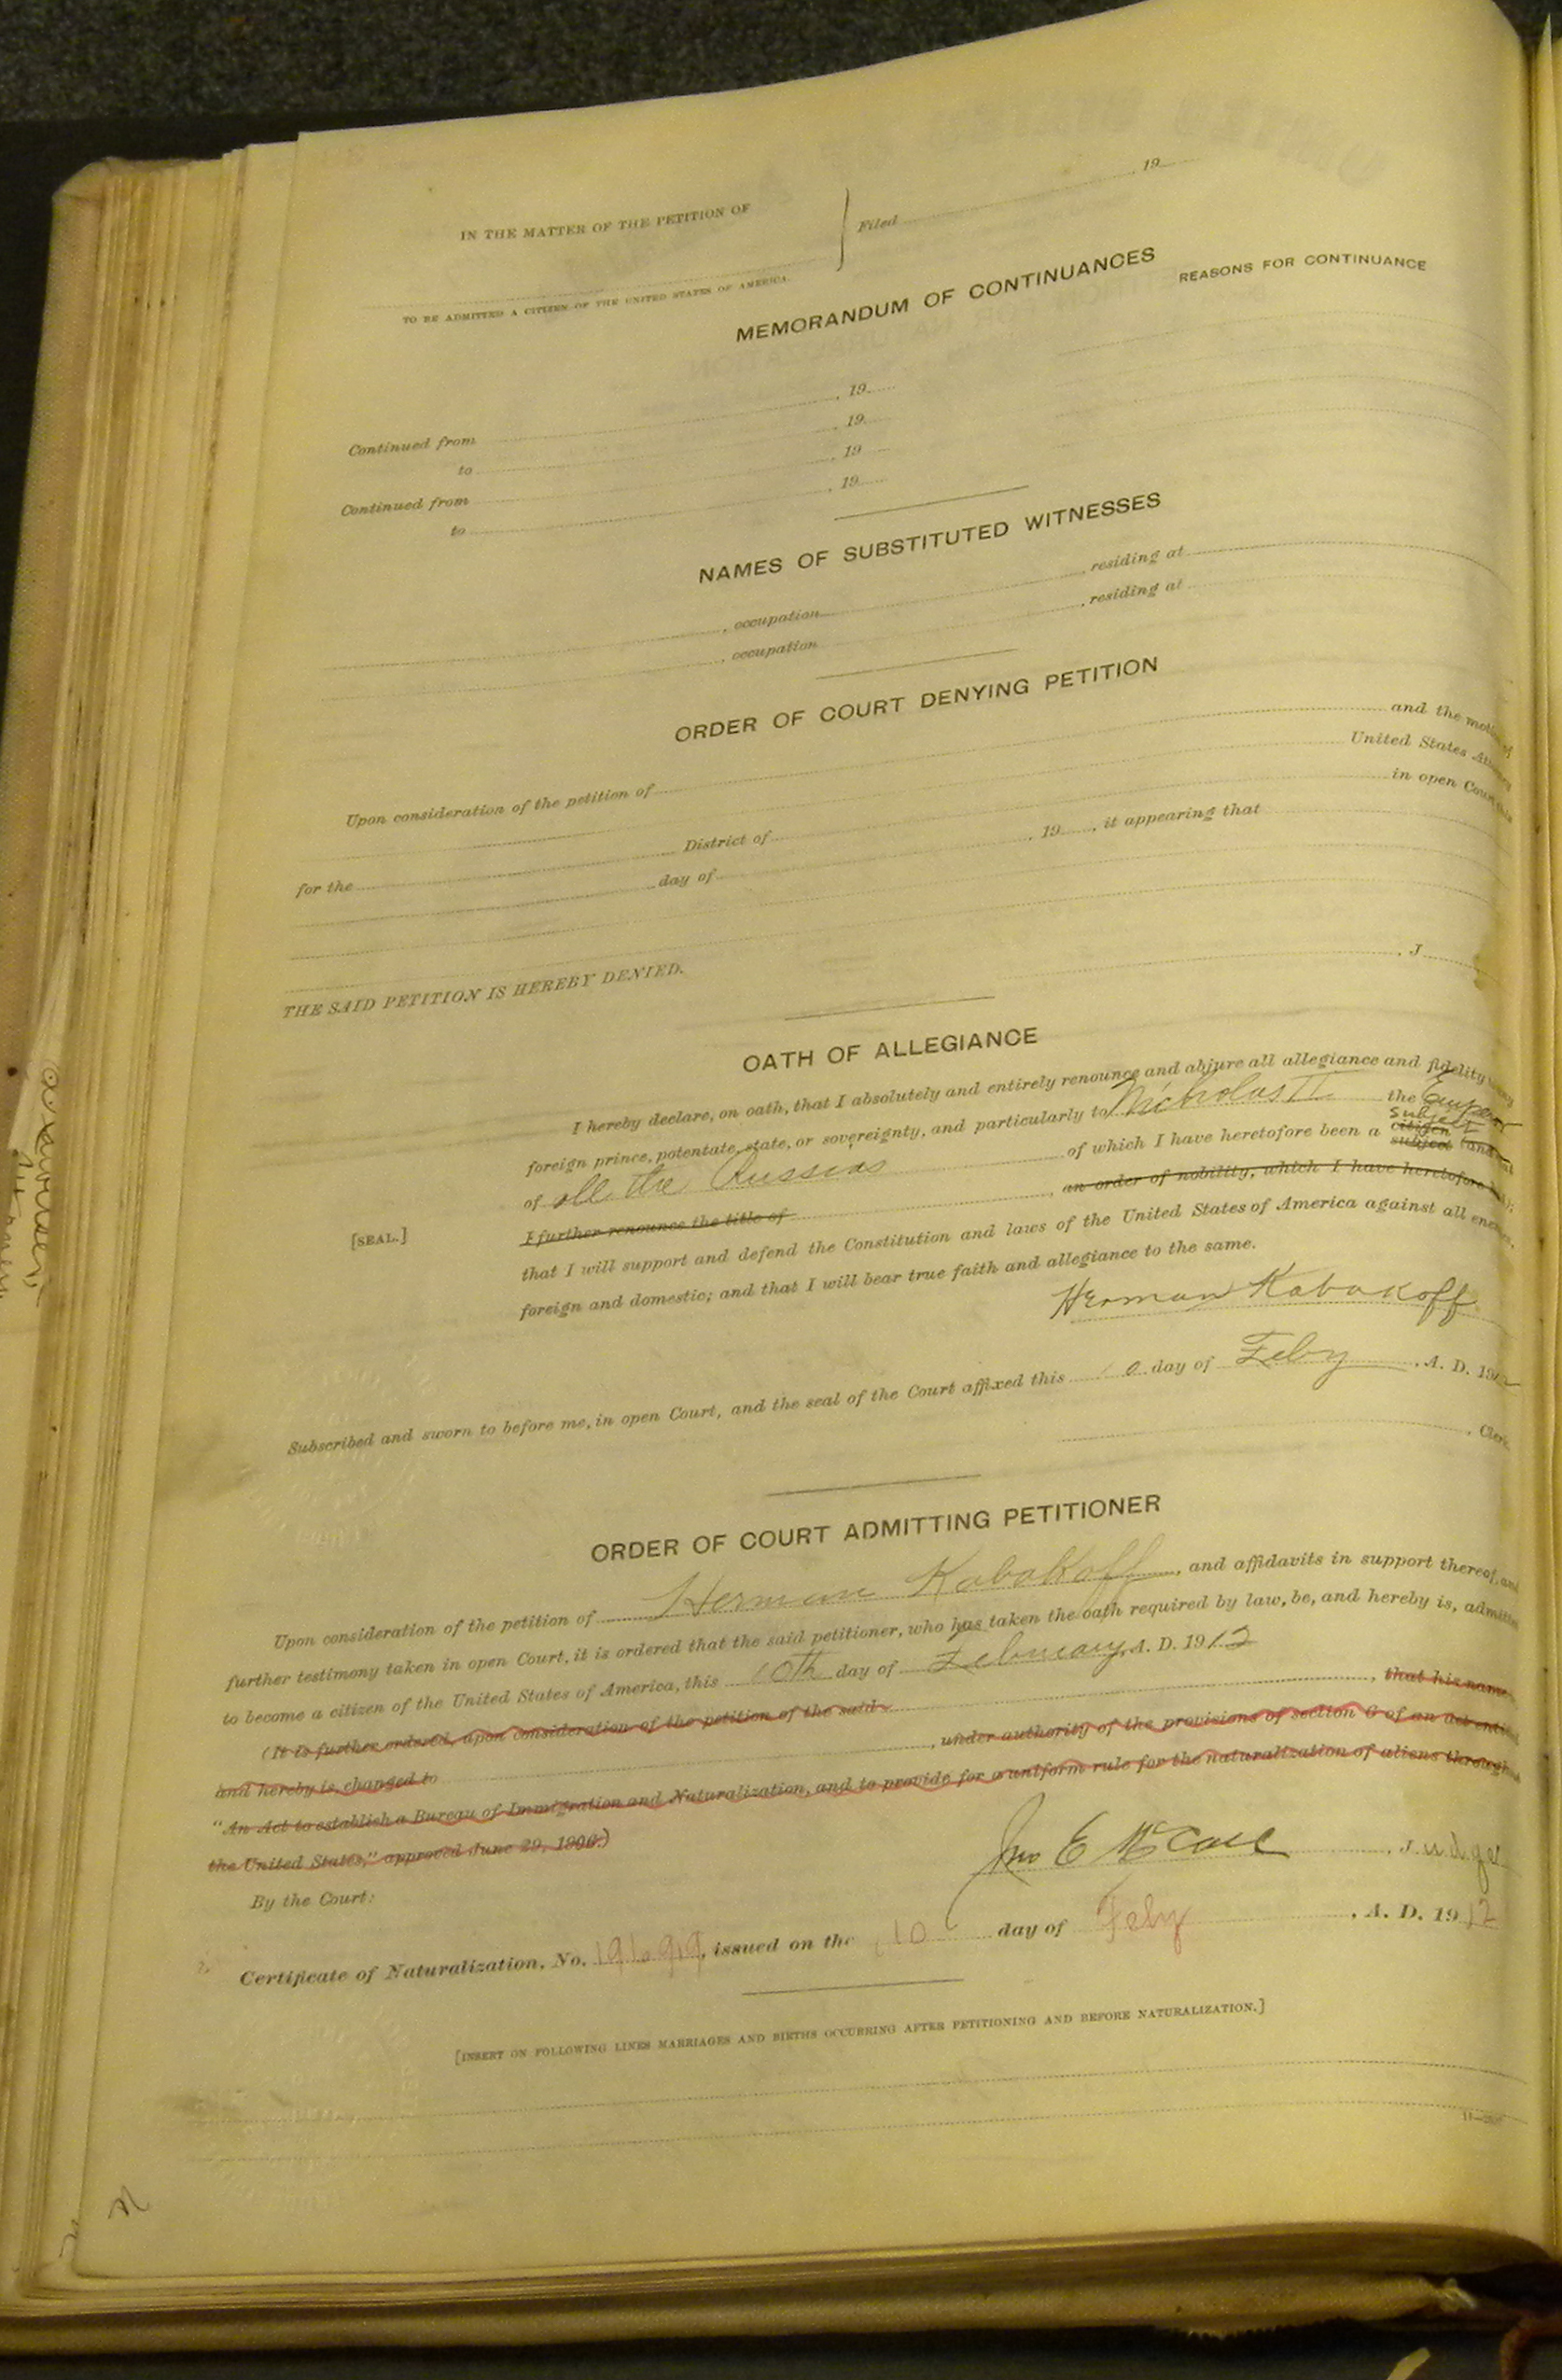 IN THE MATTER OF THE PETITION OF
Filed , 19
TO BE ADMITTED A CITIZEN OF THE UNITED STATES OF AMERICA.
MEMORANDUM OF CONTINUANCES
REASONS FOR CONTINUANCE
Continued from , 19
to , 19
Continued from , 19
to , 19
NAMES OF SUBSTITUTED WITNESSES
, occupation , residing at
, occupation , residing at
ORDER OF COURT DENYING PETITION
Upon consideration of the petition of and the motion of
United States Attorney
for the District of in open Court this
day of , 19 , it appearing that
THE SAID PETITION IS HEREBY DENIED.
, J
OATH OF ALLEGIANCE
I hereby declare, on oath, that I absolutely and entirely renounce and abjure all allegiance and fidelity
foreign prince, potentate, state, or sovereignty, and particularly to Nicholas II the Emperor
subject
of all the Russias of which I have heretofore been a citizen subject (and
I further renounce the title of , an order of nobility, which I have heretofore
[SEAL.]
that I will support and defend the Constitution and laws of the United States of America against all
foreign and domestic; and that I will bear true faith and allegiance to the same.
Herman Kabakoff
Subscribed and sworn to before me, in open Court, and the seal of the Court affixed this 10 day of Feby , A. D. 1912
, Clerk
ORDER OF COURT ADMITTING PETITIONER
Upon consideration of the petition of Herman Kabakoff , and affidavits in support thereof, and
further testimony taken in open Court, it is ordered that the said petitioner, who has taken the oath required by law, be, and hereby is, admitted
to become a citizen of the United States of America, this 10th day of February, A. D. 1912
(It is further ordered, upon consideration of the petition of the said , that his name
and hereby is, changed to , under authority of the provisions of section 6 of an act
"An Act to establish a Bureau of Immigration and Naturalization, and to provide for a uniform rule for the naturalization of aliens
the United States," approved June 29, 1906.)
By the Court:
Jno E McCall , Judge
Certificate of Naturalization, No. 191699, issued on the 10 day of Feby , A. D. 1912
[INSERT ON FOLLOWING LINES MARRIAGES AND BIRTHS OCCURRING AFTER PETITIONING AND BEFORE NATURALIZATION.]